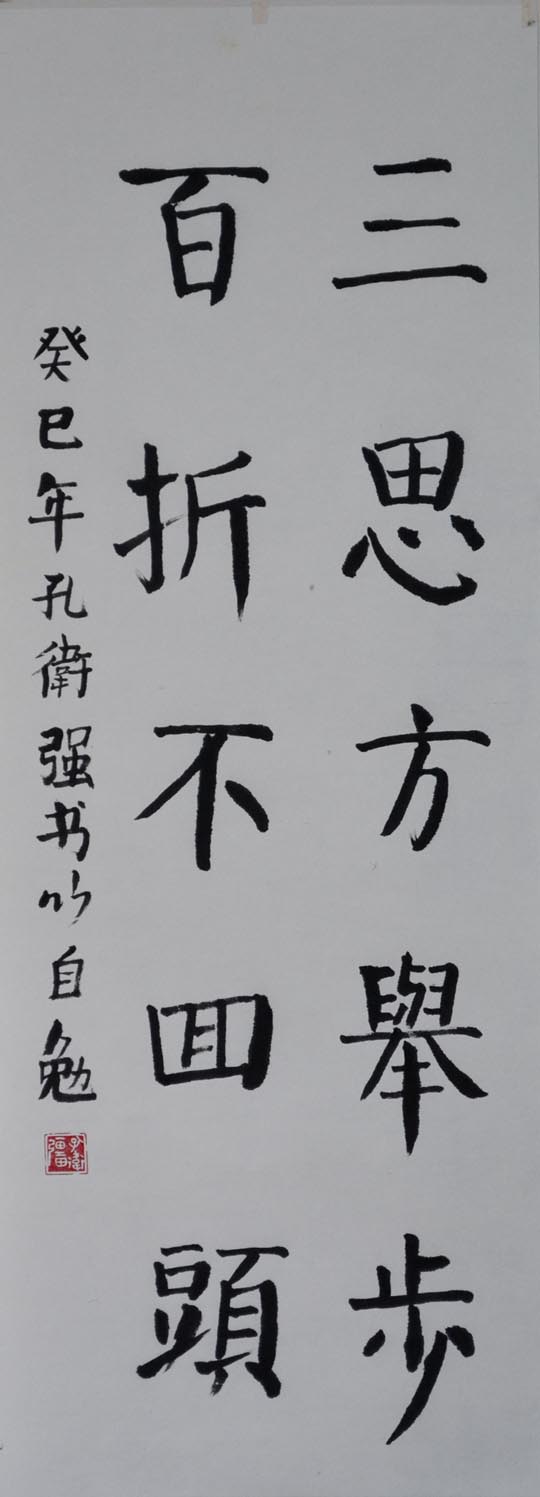 三思方舉步
百折不回頭
癸巳年孔衛强书以自勉
孔衛彊